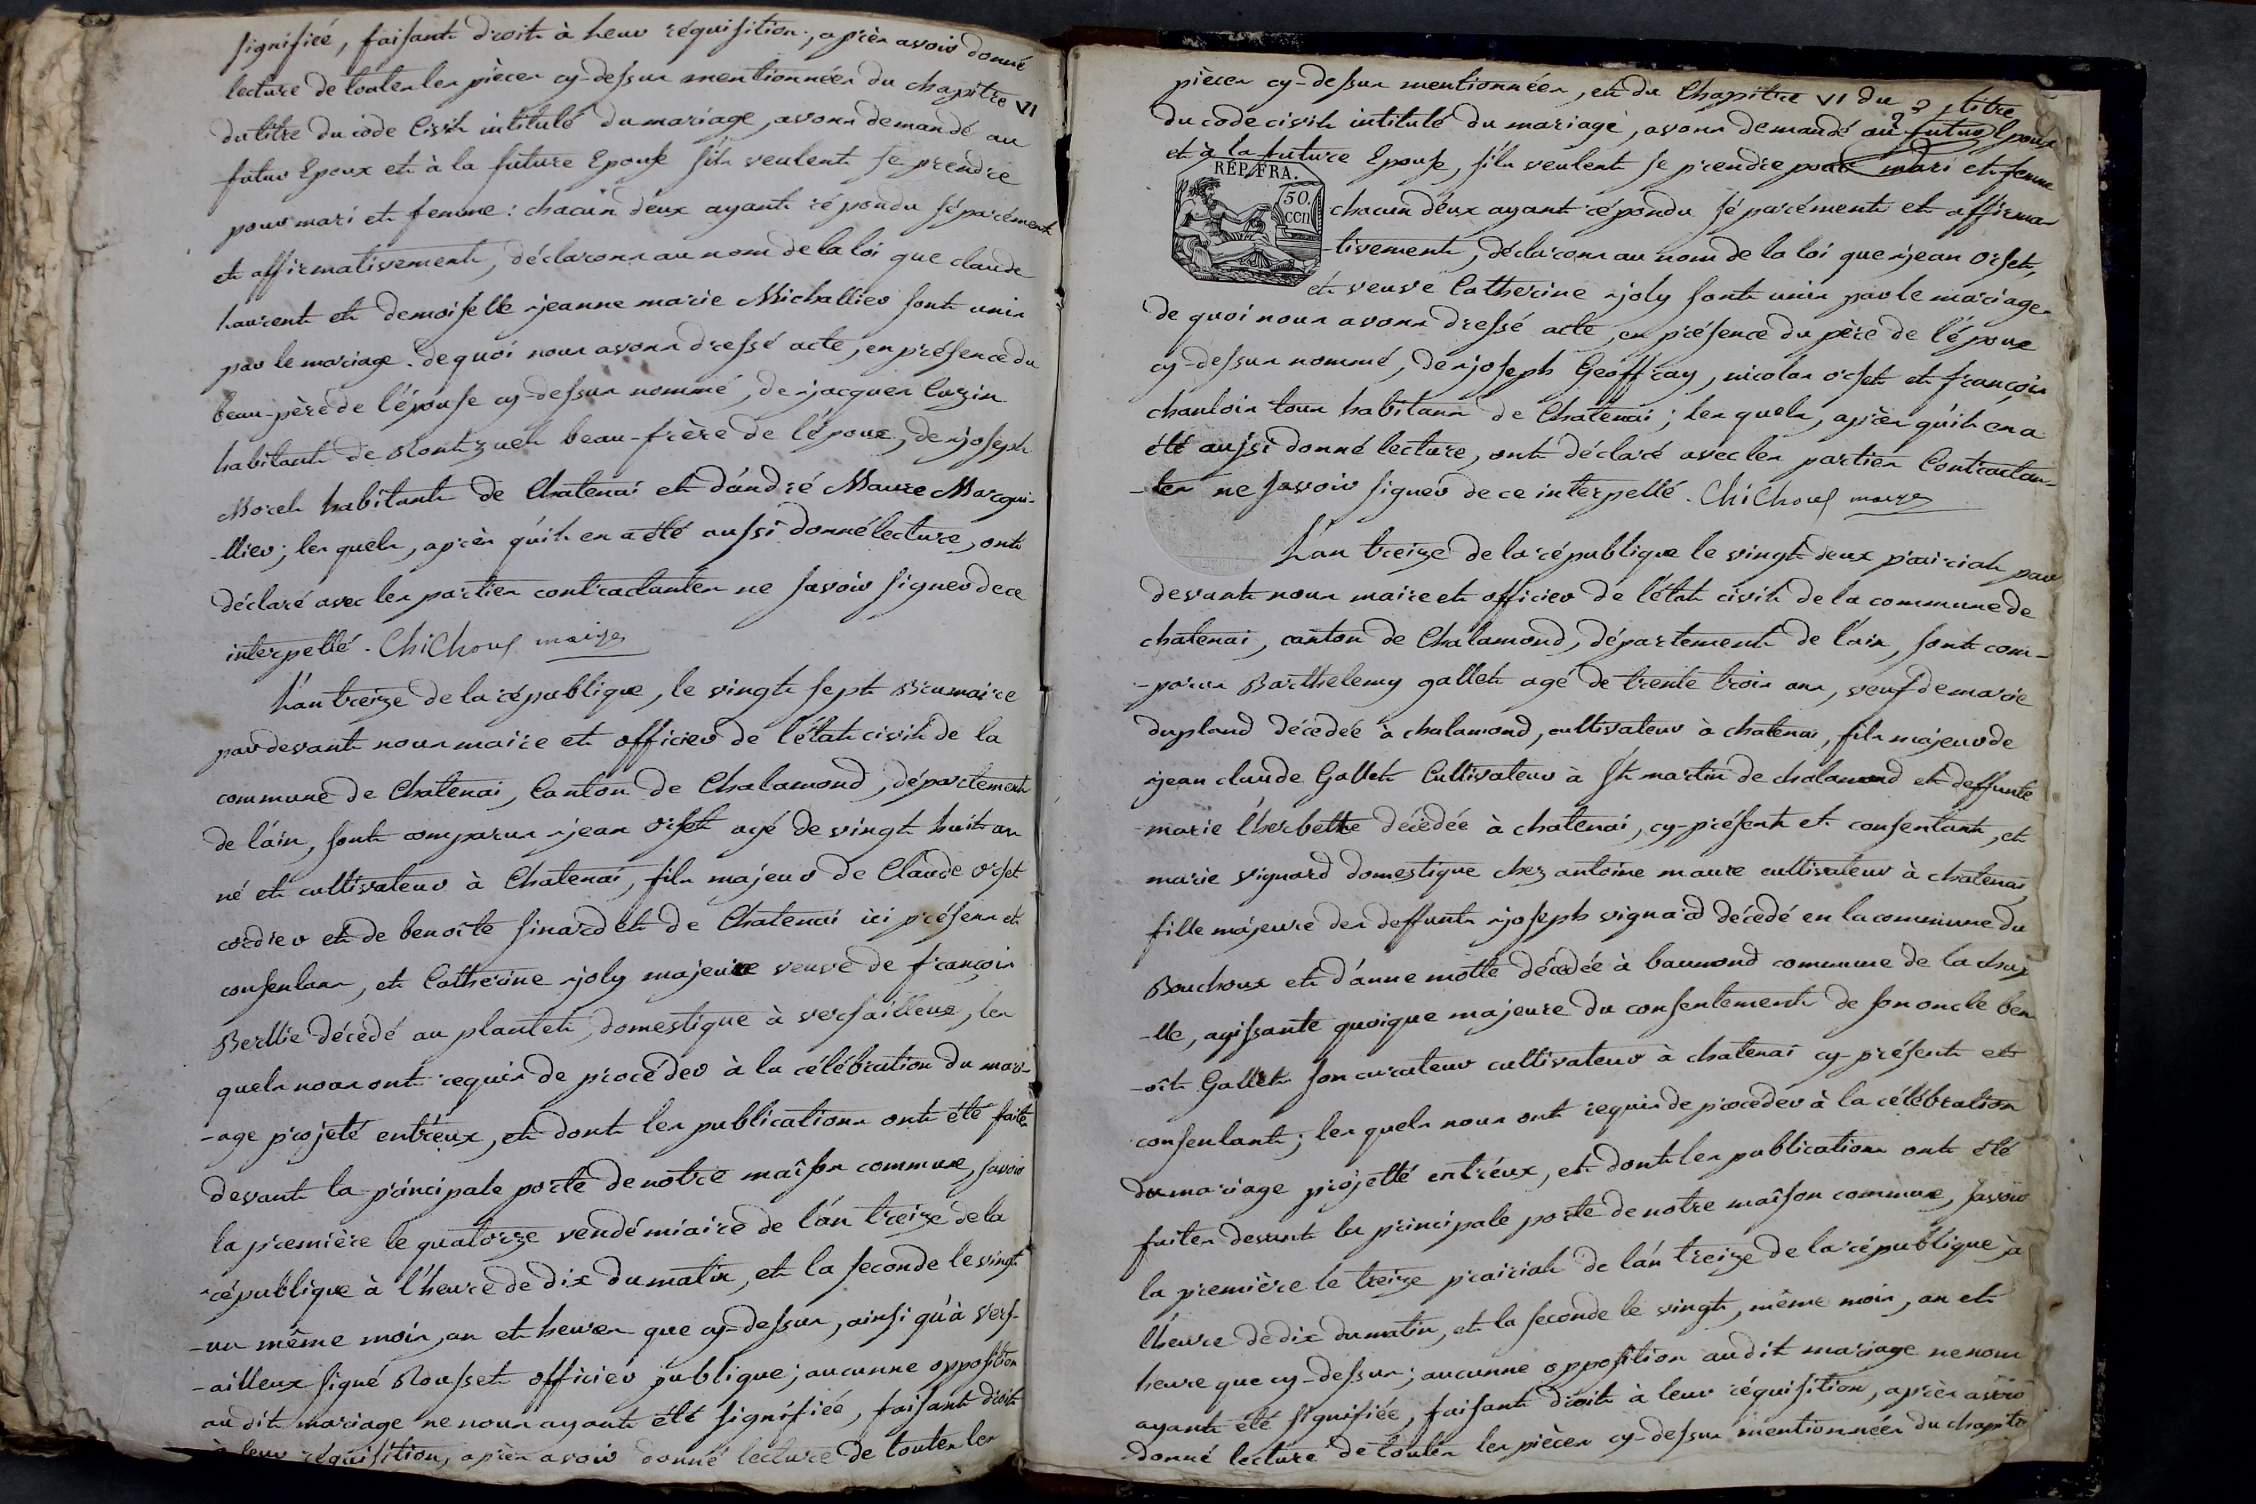 signifiée, faisant droit à leur réquisition, après avoir donné
lecture de toutes les pièces cy-dessus mentionnées du chapitre VI
du titre du code Civil intitulé du mariage, avons demandé au
futur Epoux et à la future Epouse s'ils veulent se prendre
pour mari et femme : chacun d'eux ayant répondu séparément
et affirmativement, déclarons au nom de la loi que claude
Laurent et demoiselle jeanne marie Michallier sont unis
par le mariage. de quoi nous avons dressé acte, en présence du
beau-père de l'épouse cy-dessus nommé, de jacques Cuzin
habitant de beau-frère de l'époux, de joseph
Morel habitant de Chatenai et d'andré Maure Marqui-
-llier ; les quels, après qu'il en a été aussi donné lecture, ont
déclaré avec les parties contractantes ne savoir signer de ce
interpellé. ChiChoux maire
L'an treize de la république, le vingt sept Brumaire
par devant nous maire et officier de l'état civil de la
commune de Chatenai, Canton de Chalamond, département
de l'ain, sont comparus jean Orset agé de vingt huit ans
né et cultivateur à Chatenai, fils majeur de Claude Orset
cordier et de benoîte Sinardet de Chatenai ici présens et
consentans, et Catherine joly majeure veuve de françois
Berllie décédé au plantet, domestique à versailleux, les
quels nous ont requis de procéder à la célébration du mari-
-age projeté entr'eux, et dont les publications ont été faites
devant la principale porte de notre maîson commune, savoir
la première le quatorze vendémiaire de l'an treize de la
république à l'heure de dix du matin, et la seconde le vingt
-un même mois, an et heures que cy-dessus, ainsi qu'à vers-
-ailleux signé Rousset officier publique ; aucunne opposition
au dit mariage ne nous ayant été signifiée, faisant droit
à leur réquisition, après avoir donné lecture de toutes les
pièces cy-dessus mentionnées, et du Chapitre VI du titre
du code civil intitulé du mariage, avons demandé au futur Epoux
et à la future Epouse, s'ils veulent se prendre pour mari et femme
RÉP. FRA.
50 cen
chacun d'eux ayant répondu séparément et affirma-
-tivement, déclarons au nom de la loi que jean Orset,
et veuve Catherine joly sont unis par le mariage.
de quoi nous avons dressé acte, en présence du père de l'époux
cy-dessus nommé, de joseph Geoffray, nicolas orset et françois
chanloin tous habitans de Chatenai ; les quels, après qu'il en a
été aussi donné lecture, ont déclaré avec les parties Contractan-
-tes ne savoir signer de ce interpellé. ChiChoux maire
L'an treize de la république le vingt deux prairial par
devant nous maire et officier de l'état civil de la commune de
chatenai, canton de Chalamond, département de l'ain, sont com-
-parus Barthelemy gallet agé de trente trois ans, veuf de marie
dupland décedée à chalamond, cultivateur à chatenai, fils majeur de
jean claude Gallet Cultivateur à St martin de chalamond et deffunte
marie l'herbette décédée à chatenai, cy-présent et consentant, et
marie vignard domestique chez antoine maure cultivateur à chatenai,
fille majeure des deffunts joseph vignard décédé en la commune du
Bouchoux et d'anne motte décédée à baumond commune de la chap
-lle, agissante quoique majeure du consentement de son oncle ben
-oît Gallet son curateur cultivateur à chatenai cy-présent et
consentant ; les quels nous ont requis de procéder à la célébration
du mariage projetté entr'eux, et dont les publications ont été
faites devant la principale porte de notre maîson commune, savoir
la première le treize prairial de l'an treize de la république à
l'heure de dix du matin, et la seconde le vingt, même mois, an et
heure que cy-dessus ; aucunne opposition au dit mariage ne nous
ayant été signifiée, faisant droit à leur réquisition, après avoir
donné lecture de toutes les pièces cy-dessus mentionnées du chapitre